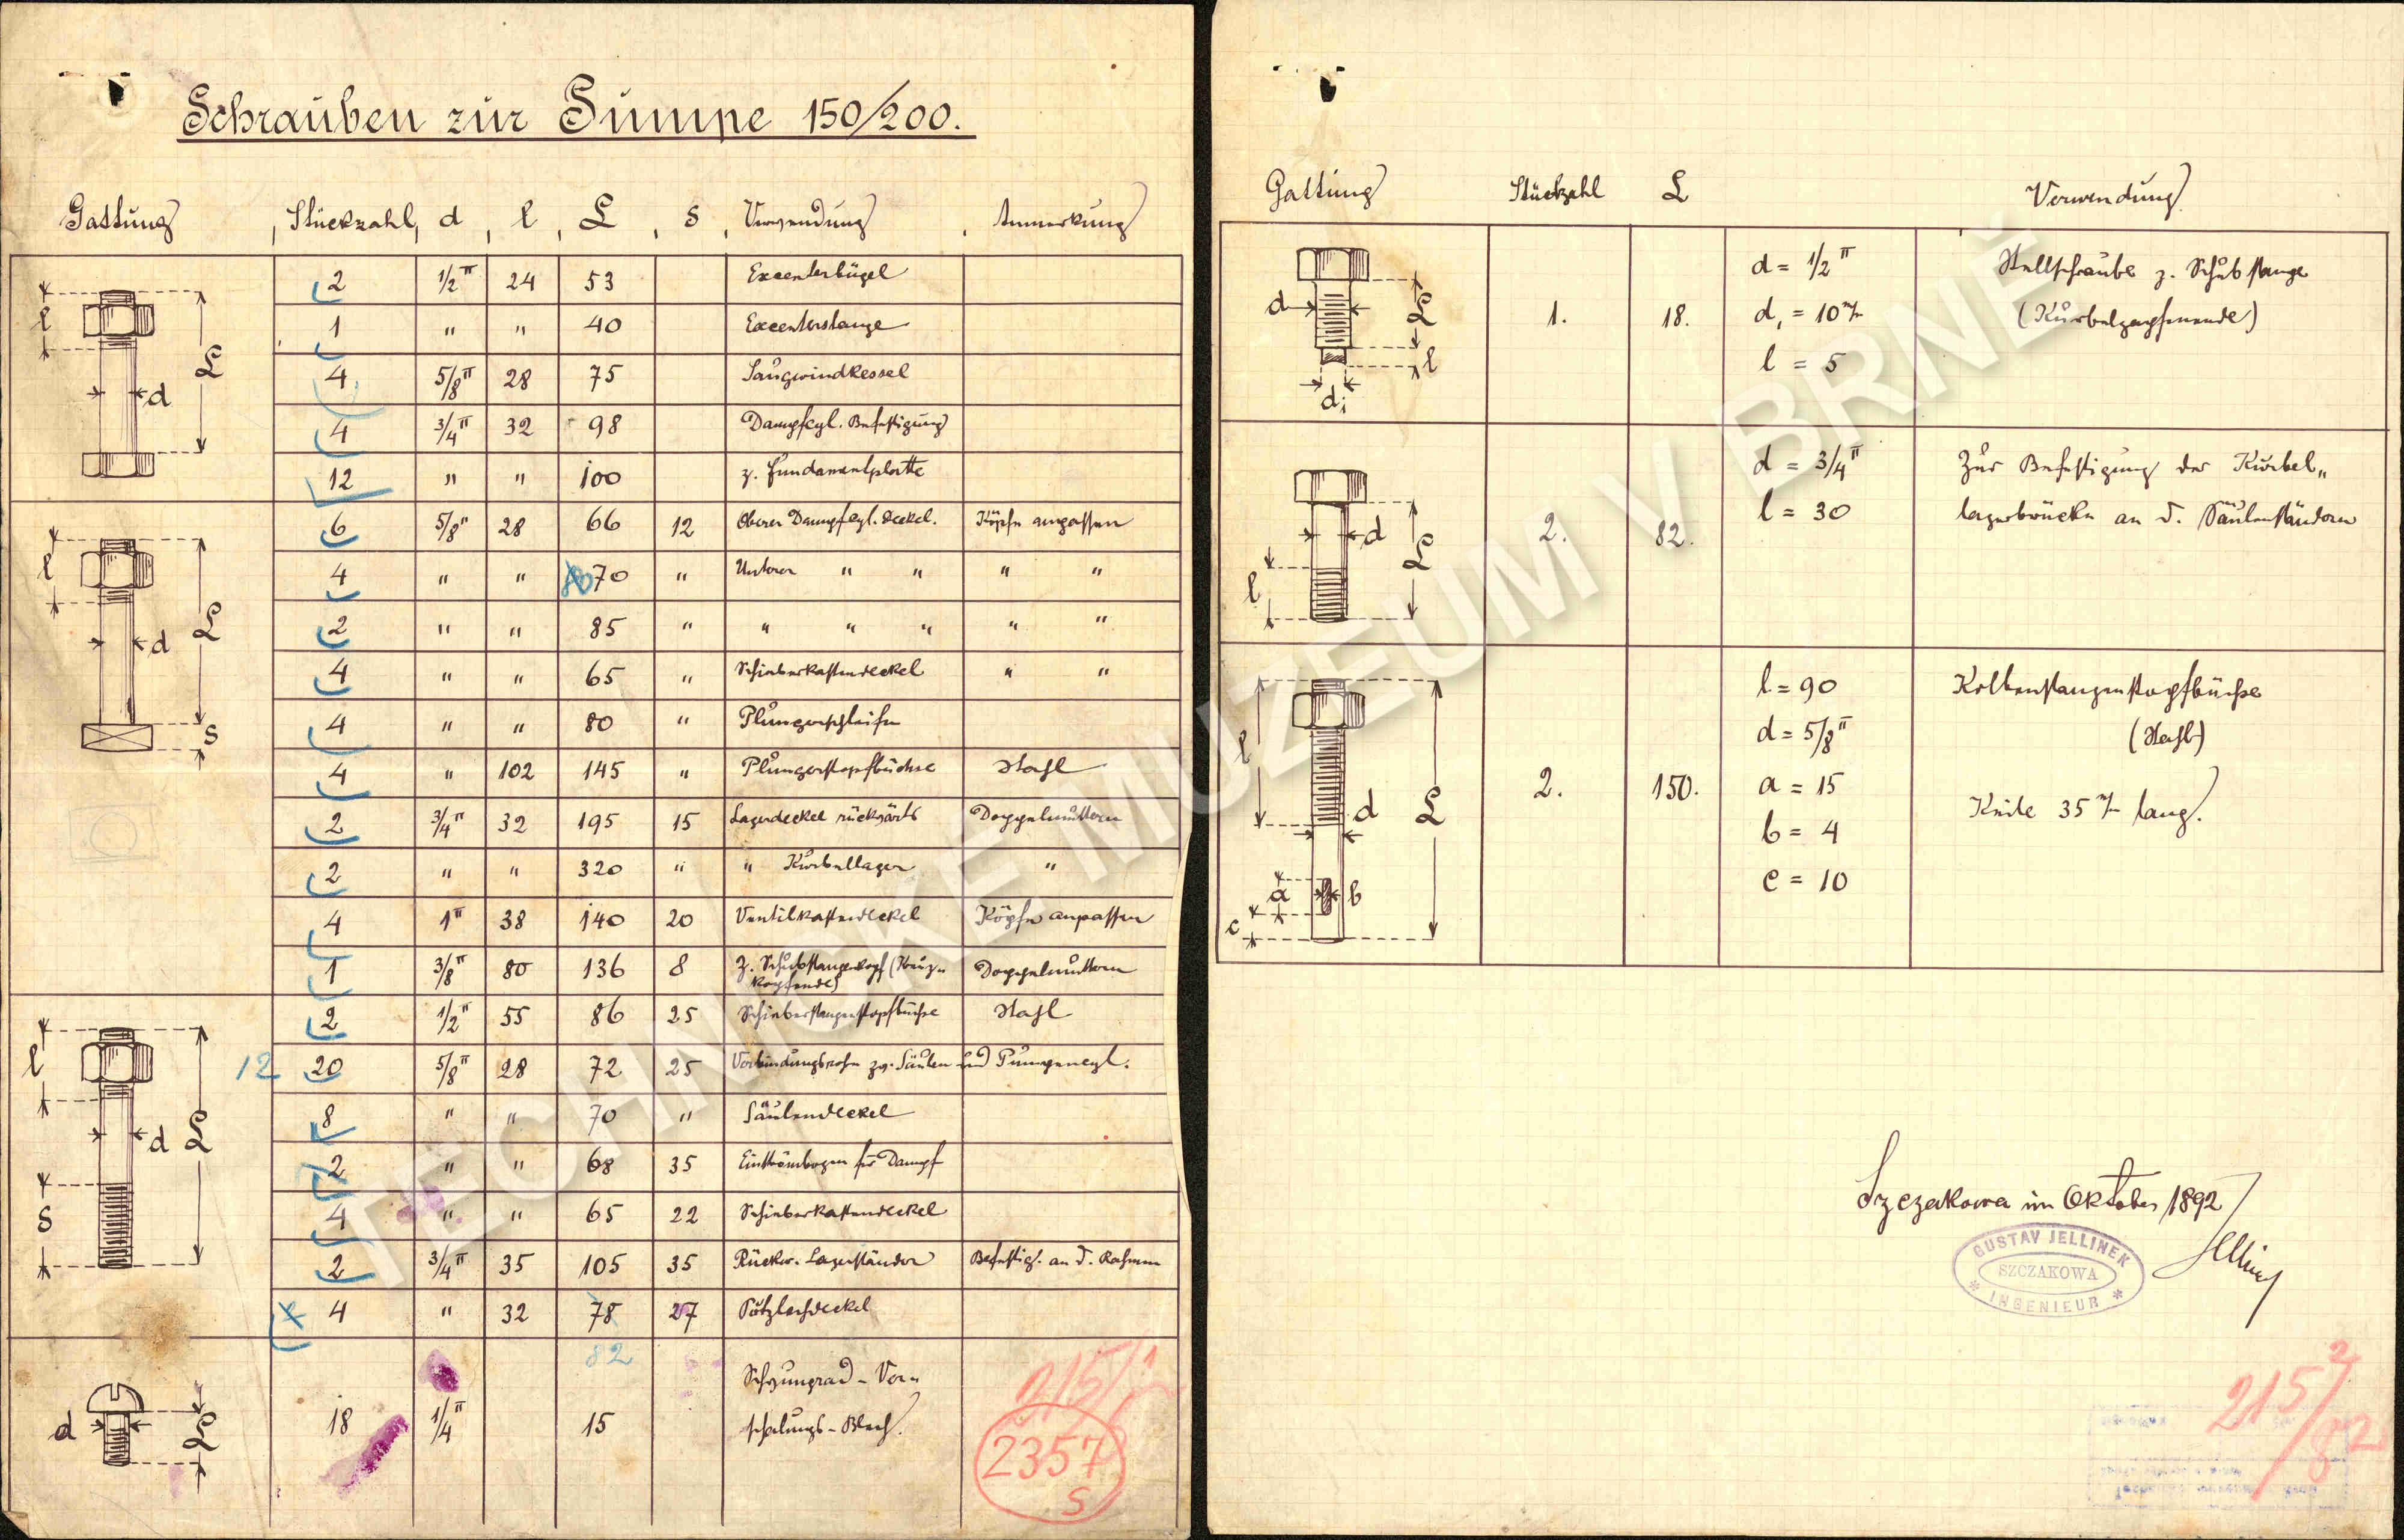 Schrauben zur Pumpe 150/200.
Gattung Stückzahl d l L s Verwendung Anmerkung
2 1/2" 24 53 Excenterbügel
1 " " 40 Excenterstange
4 5/8" 28 75 Saugwindkessel
4 3/4" 32 98 Dampfcyl. Befestigung
12 " " 100 z. Fundamentplatte
l d L
6 5/8" 28 66 12 Oberer Dampfcyl. Deckel. Köpfe anpassen
4 " " 70 " Unterer " " " "
2 " " 85 " " " " " "
4 " " 65 " Schieberkastendeckel " "
4 " " 80 " Plungerschleife
4 " 102 145 " Plungerstopfbüchse Stahl
2 3/4" 32 195 15 Lagerdeckel rückwärts Doppelmuttern
2 " " 320 " " Kurbellager "
4 1" 38 140 20 Ventilkastendeckel Köpfe anpassen
1 3/8" 80 136 8 z. Schubstangenkopf (Kreuz-
kopfende) Doppelmuttern
l d L s
2 1/2" 55 86 25 Schieberstangenstopfbüchse Stahl
12 20 5/8" 28 72 25 Verbindungsrohr zw. Säulen und Pumpencyl.
8 " " 70 " Säulendeckel
2 " " 68 35 Einströmbogen für Dampf
4 " " 65 22 Schieberkastendeckel
2 3/4" 35 105 35 Rückw. Lagerständer Befestig. an d. Rahmen
4 " 32 78 27 Putzlochdeckel
82
l d L s
18 1/4" 15 Schwungrad-Ver-
schalungs-Blech.
d L
215/1
2357
S
Gattung Stückzahl L Verwendung
1. 18. d = 1/2" Stellschraube z. Schubstange
d₁ = 10 m/m (Kurbelzapfenende)
l = 5
d L l d₁
2. 82. d = 3/4" Zur Befestigung der Kurbel-
l = 30 lagerbrücke an d. Säulenständern
d L l
2. 150. l = 90 Kolbenstangenstopfbüchse
d = 5/8" (Stahl)
a = 15
b = 4 Keile 35 m/m lang.
c = 10
l d L a b c
Szczakowa im Oktober 1892
Jellinek
GUSTAV JELLINEK
SZCZAKOWA
* INGENIEUR *
215/2
82
TECHNICKÉ MUZEUM V BRNĚ